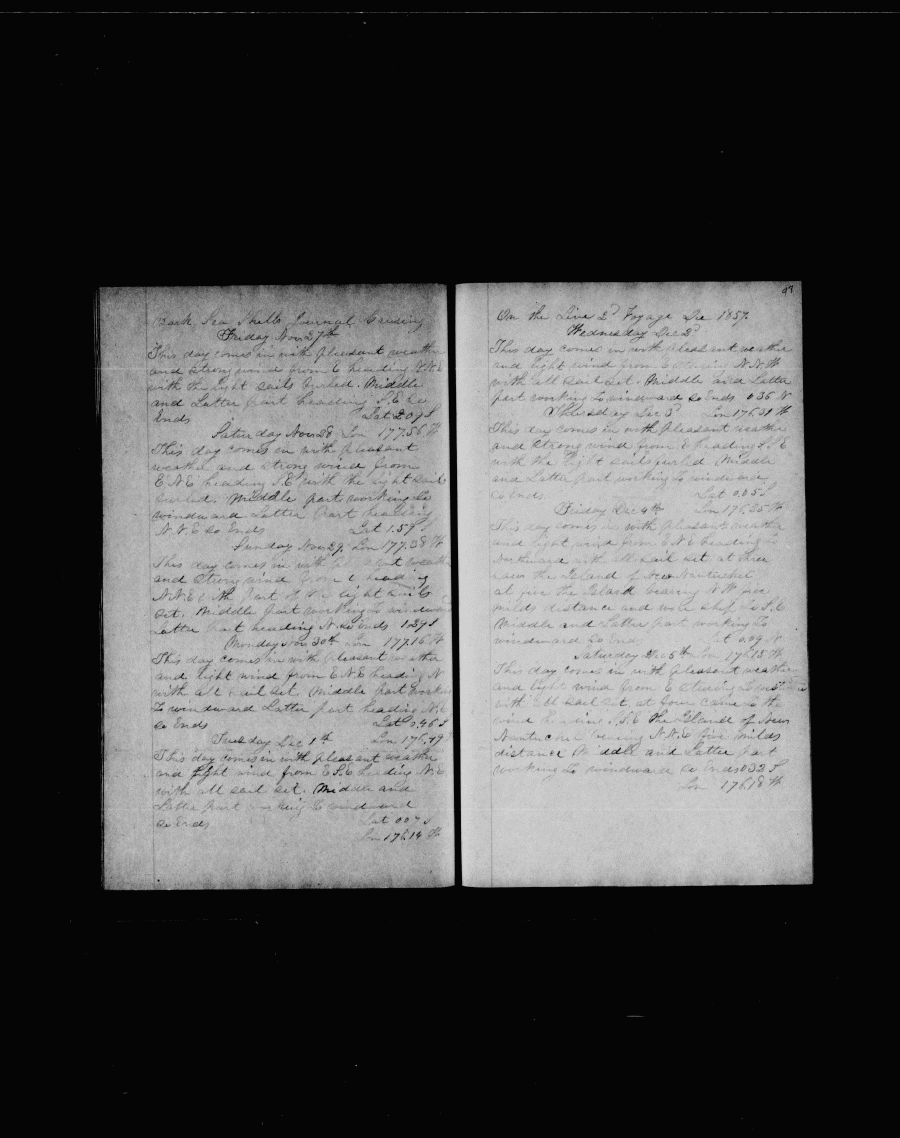 Bark Sea Shells Journal Cruising
Friday Nov 27th
This day comes in with pleasant weather
and strong wind from E heading N.N.E
with the light sails furled. Middle
and Latter part heading S.E. So
Ends Lat 2.09 S
Saturday Nov 28 Lon 177.56 W
This day comes in with pleasant
weather and strong wind from
E.N.E heading S.E with the light sails
furled. Middle part working to
windward Latter Part heading
N.N.E So Ends Lat 1.59 S
Sunday Nov 29 Lon 177.38 W
This day comes in with pleasant weather
and strong wind from E heading
N.N.E with Part of the light sails
set. Middle part working to windward
Latter Part heading N. so ends 1.29 S
Monday Nov 30th Lon 177.16 W
This day comes in with pleasant weather
and light wind from E.N.E heading N
with all sail set. Middle part working
To windward Latter part heading N.E
so Ends Lat 0.46 S
Tuesday Dec 1th Lon 176.49
This day comes in with pleasant weather
and light wind from E.S.E heading N.E
with all sail set. Middle and
Latter part working to windward
so Ends Lat 007 S
Lon 176.14 W
93
On the Line 2d Voyage Dec 1857
Wednesday Dec 2d
This day comes in with pleasant weather
and light wind from E N.N.W
with all sail set. Middle and Latter
part working to windward So Ends 0.36 N
Thursday Dec 3d Lon 176.31 W
This day comes in with Pleasant weather
and strong wind from E heading S.S.E
with the light sails furled Middle
and Latter part working to windward
so Ends Lat 0.05 S
Friday Dec 4th Lon 176.25 W
This day comes in with Pleasant weather
and light wind from E.N.E heading to
Northward with all sail set at three
saw the Island of New Nantucket
at five the Island bearing N.W five
milds distance and wore ship to S.E
Middle and Latter part working To
windward So Ends Lat 0.09 N
Saturday Dec 5th Lon 176.15 W
This day comes in with pleasant weather
and light wind from E steering
with all sail set. at four came to the
wind heading S.S.E the Island of New
Nantucket bearing N.N.E five milds
distance Middle and Latter part
working To windward so Ends 0.32 S
Lon 176.18 W